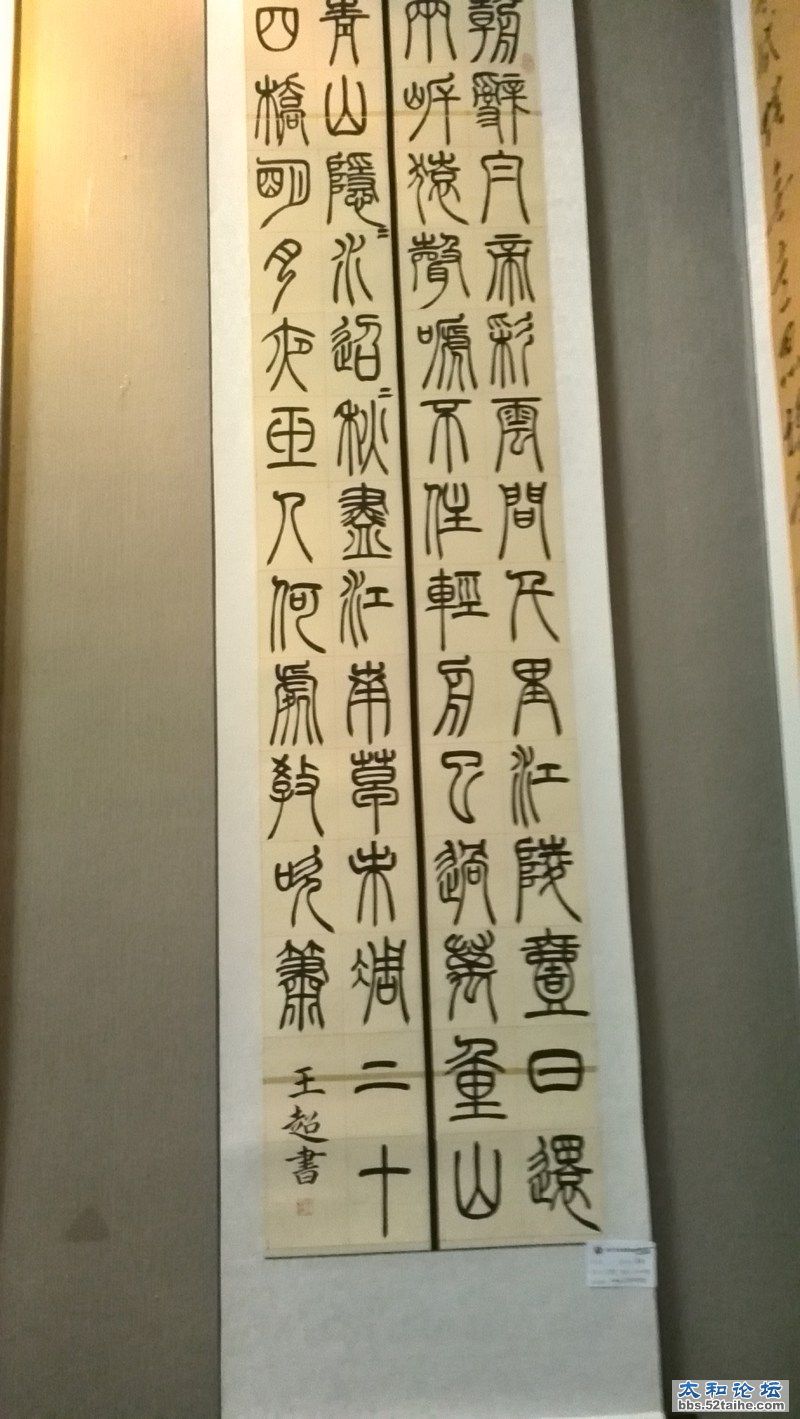 朝辭白帝彩雲間千里江陵壹日還
兩岸猿聲嗁不住輕舟已過萬重山
青山隱〻水迢〻秋盡江南草未凋二十
四橋明月夜玉人何處教吹簫
王超書
太和论坛
bbs.52taihe.com